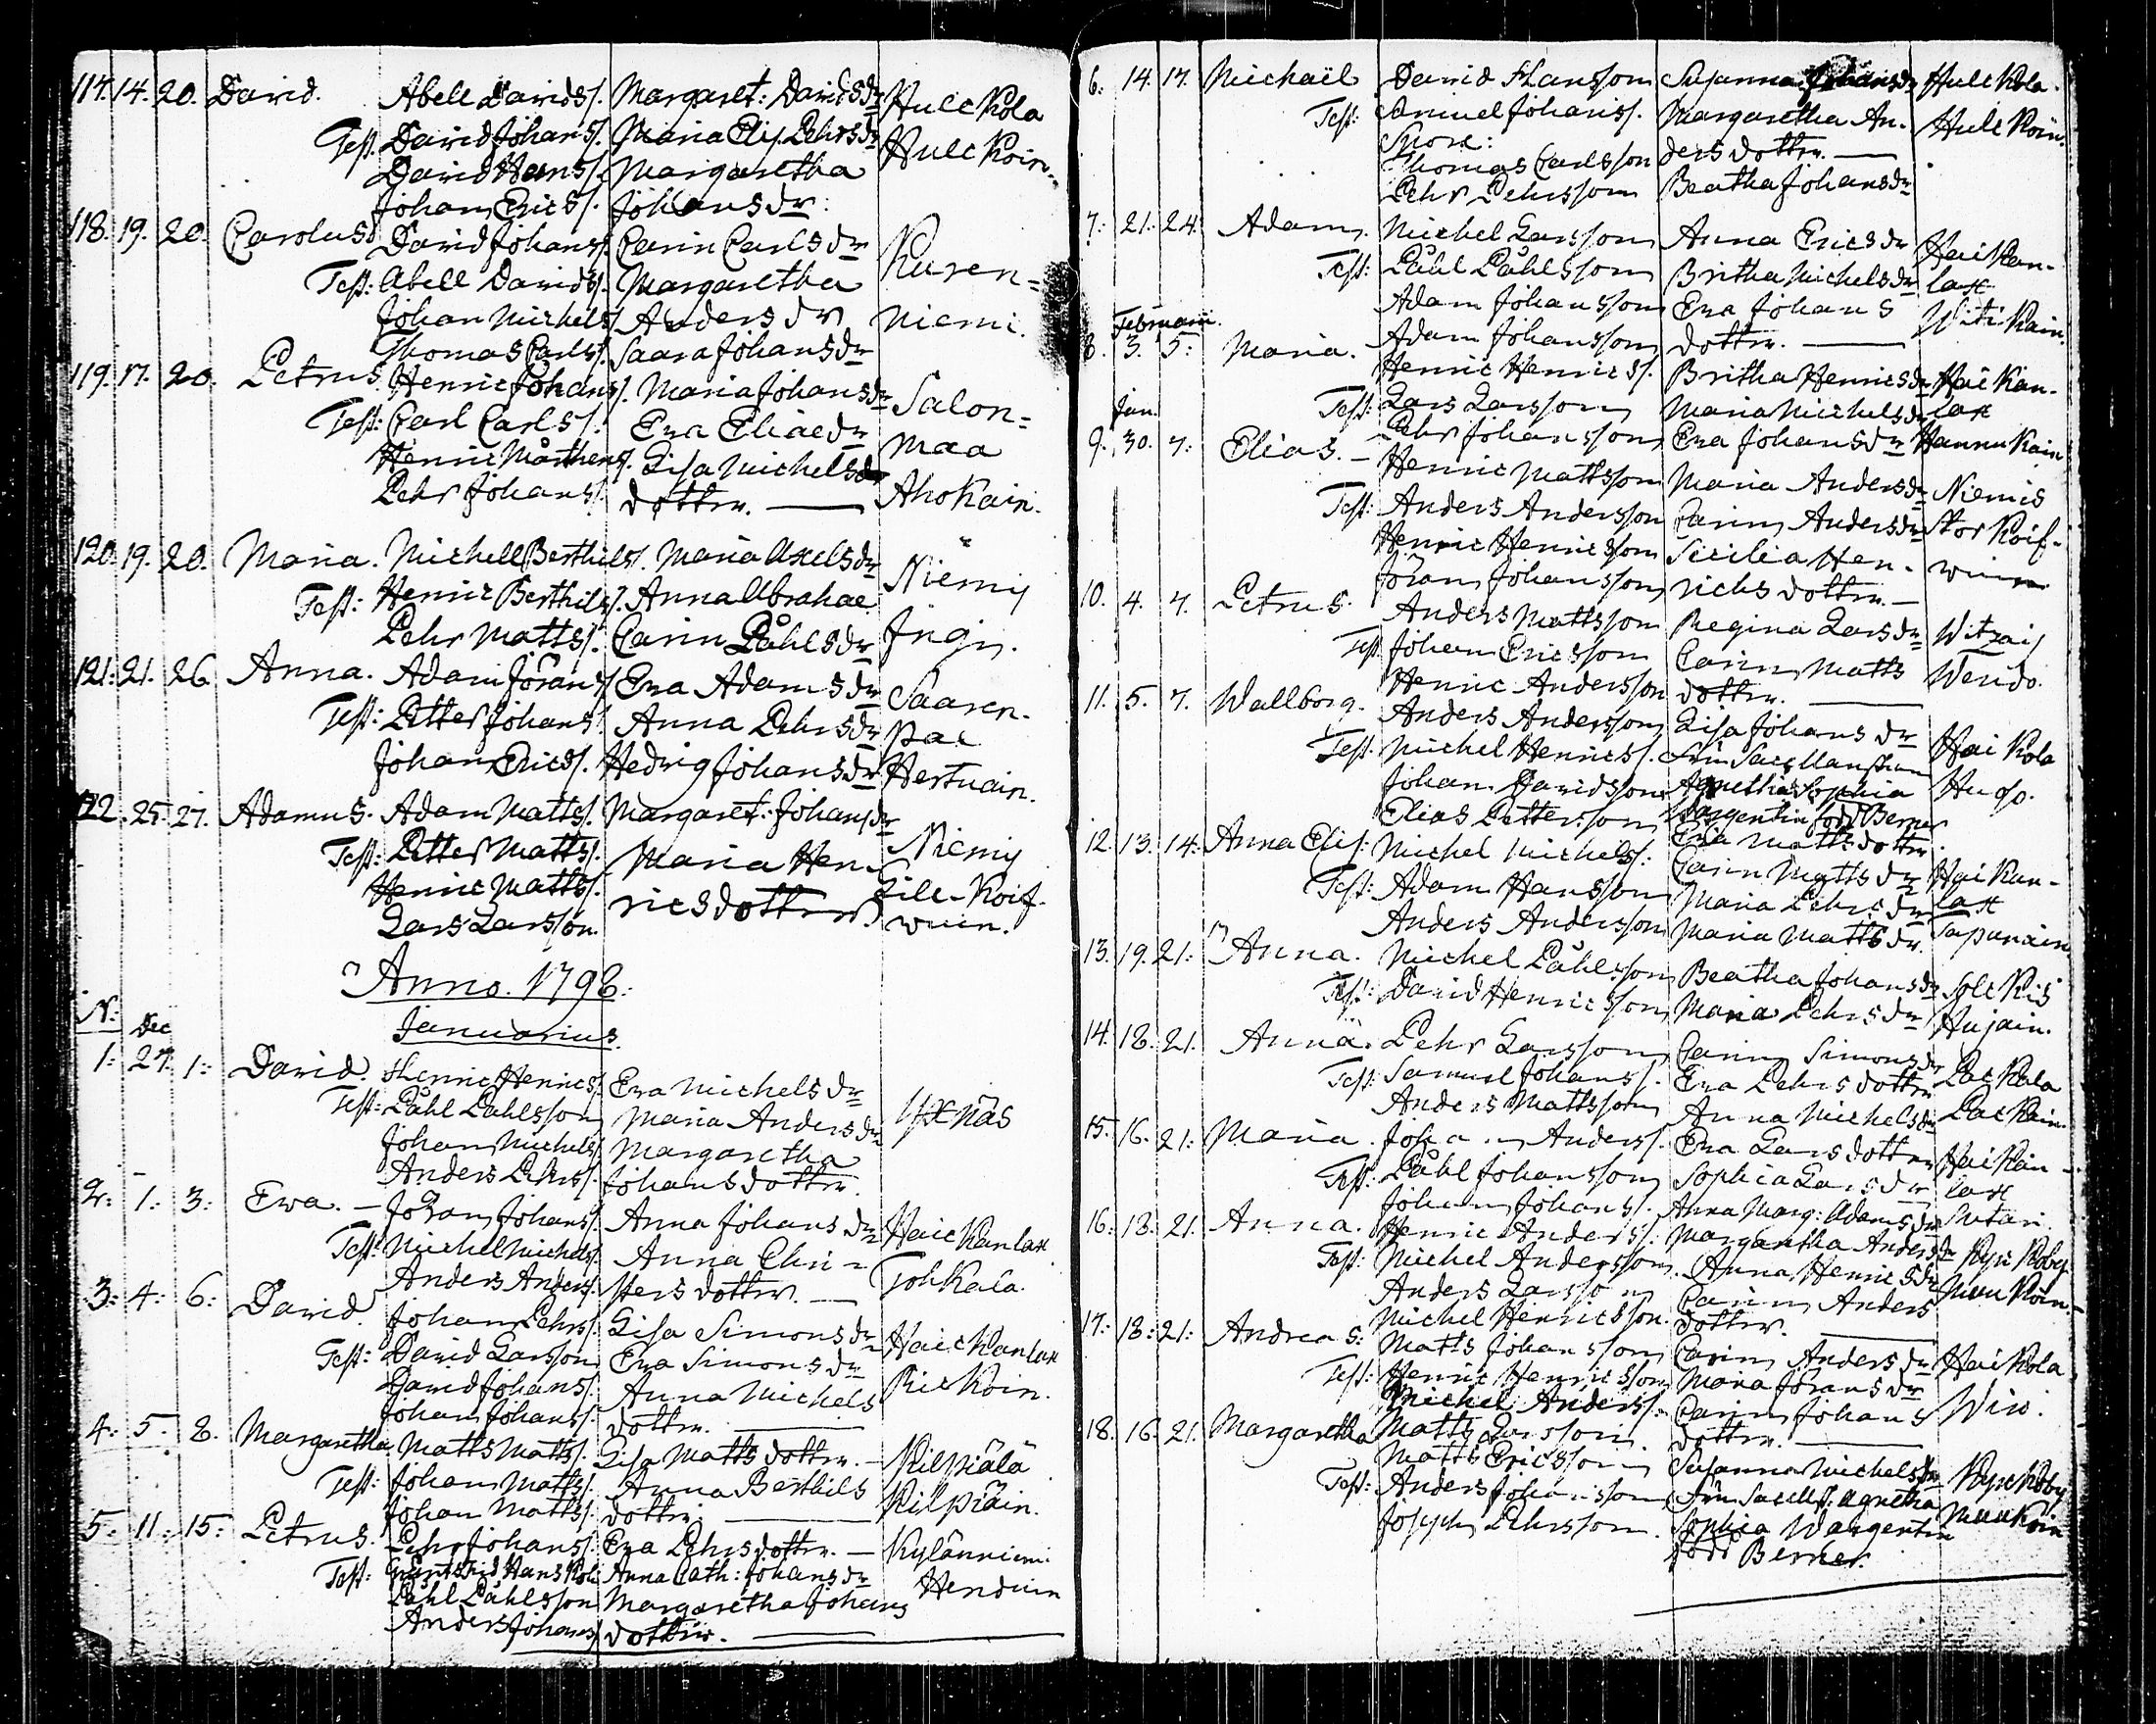 114. 14. 20. David. Abell Davids/. Margaret: Davidsdr Hulckola
Test. David Johans/. Maria Elis. Pehrsdr Hulckoin.
David Hans/. Margaretha
Johan Erics/. Johansdr:
118. 19. 20. Carolus David Johans/. Carin Carlsdr Kuren=
Test: Abell Davids/. Margaretha
Johan Michels/. Andersdr niemi.
Thomas Carls/. Saara Johansdr
119. 17. 20. Petrus. Henric Johans/. Maria Johansdr Salon=
Test: Carl Carls/. Eva Eliaedr maa
Henric Mårthens/. Lisa Michels
Pehr Johans/. dotter. — Ahokain.
120. 19. 20. Maria. Michell Berthils/. Maria Axelsdr Niemis
Test: Henric Berthils/. Anna Abrahae
Pehr Matts/. Carin Påhlsdr Ingin.
121. 21. 26. Anna. Adam Jörans/. Eva Adamsdr Saaren-
Test: Petter Johans/. Anna Pehrsdr pae
Johan Erics/. Hedvig Johansdr Hertuain.
122. 25. 27. Adamus. Adam Matts/. Margaret: Johansdr
Test: Petter Matts/. Maria Hen- Niemis
Henric Matts/. ricsdotter. Lill-Koif-
Lars Larsson. wuin.
Anno. 1798:
Januarius.
N: Dec
1: 27. 1: David. Henric Henrics/. Eva Michelsdr
Test: Påhl Påhlsson Maria Andersdr Yxnäs
Johan Michels/. Margaretha
Anders Pehrs/. Johansdotter.
2: 1: 3: Ewa. — Jöran Johans/. Anna Johansdr Haickanlax
Test: Michel Michels/. Anna Chri-
Anders Anders/. stersdotter. — Tohkala.
3: 4: 6: David. Johan Pehrs/. Lisa Simonsdr Haickanlax
Test: David Larsson Eva Simonsdr
David Johans/. Anna Michels Rickoin.
Johan Johans/. dotter. —
4: 5: 8. Margaretha Matts Matts/. Lisa Mattsdotter. — Kilpiälä
Test: Johan Matts/. Anna Berthils Kilpiäin.
Johan Matts/. dotter. —
5: 11: 15: Petrus. Pehr Johans/. Eva Pehrsdotter. — Kylänniemi
Test: Hans Anna Cath: Johansdr
Påhl Påhlsson Margaretha Johans Henduin
Anders Johans/. dotter. —
6. 14. 17. Michaël David Hansson Susanna Johansdr Hulckola.
Test: Samuel Johans/. Margaretha An- Hulckoin.
Thomas Carlsson dersdotter. —
Pehr Pehrsson Beatha Johansdr
7: 21. 24. Adam. Michel Larsson Anna Ericsdr Haickan-
Test: Påhl Påhlsson Britha Michelsdr lax
Adam Johansson Eva Johans Witikain
Februarii. Adam Johansson dotter. —
8. 3. 5: Maria. Henric Henrics/. Britha Henricsdr Haickan-
Jan. Test: Lars Larsson Maria Michelsdr lax
Pehr Johansson Eva Johansdr Hannukain
9. 30. 7: Elias. — Henric Mattsson Maria Andersdr Niemis
Test: Anders Andersson Carin Andersdr Stor Koif-
Henric Henricsson Sicilia Hen- wuin
Jöran Johansson richsdotter. —
10. 4. 7. Petrus. Anders Mattsson Regina Larsdr
Test Johan Ericsson Carin Matts
Henric Andersson dotter. —
11. 5. 7. Wallborg. Anders Andersson Lisa Johansdr Haikola
Test Michel Henrics/. Frun
Johan Davidsson Agnetha Sophia Hugo.
Elias Pettersson Wargentin född Berner
Eva Mattsdotter
12. 13. 14: Anna Elis: Michel Michels/: Carin Mattsdr Haickan-
Test: Adam Hansson Maria Pehrsdr lax
Anders Andersson Maria Mattsdr. Tapanain
13. 19. 21: Anna. Michel Påhlsson Beatha Johansdr Solckis
Test: David Henricsson Maria Pehrsdr Hujain.
14. 18. 21. Anna. Pehr Larsson Carin Simonsdr Packala
Test: Samuel Johans/. Eva Pehrsdotter
Anders Mattsson Anna Michelsdr Packain.
15. 16. 21: Maria. Johan Anders/. Eva Larsdotter Haickan-
Test: Påhl Johansson Sophia Larsdr lax
Johan Johans/. Anna Marg: Adamsdr Sutari.
16. 18. 21. Anna. Henric Anders/: Margaretha Andersdr Pyckoby
Test: Michel Andersson. Anna Henricsdr Muukoin.
Anders Larsson Carin Anders
Michel Henricsson. dotter. —
17. 18. 21: Andreas: Matts Johansson Carin Andersdr Haikola
Test: Henric Henricsson Maria Joransdr
Michel Anders/. Carin Johans Wiro.
Matts Larsson. dotter. —
18. 16. 21. Margaretha Matts Ericsson Susanna Michelsdr Pyckoby
Test: Anders Johansson Frun Sacells. Agnetha Muukoin
Joseph Pehrsson. Sophia Wargentin
född Berner.